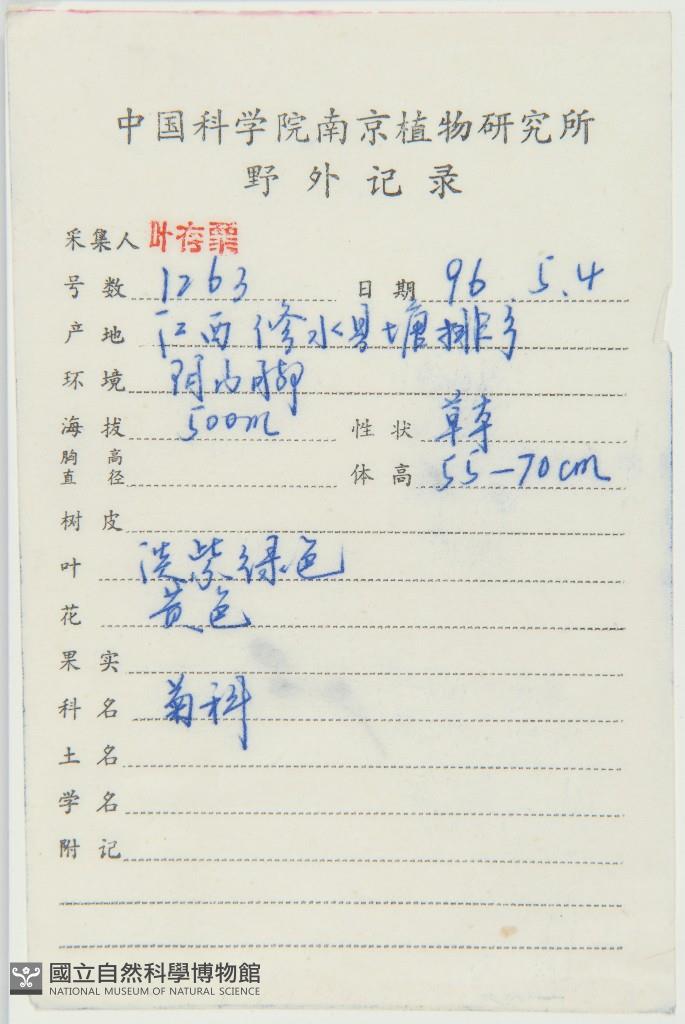 中国科学院南京植物研究所
野外记录
采集人 叶存粟
号数 1263 日期 96.5.4
产地 江西修水县塘排乡
环境 阴山脚
海拔 500m 性状 草本
胸高直径 体高 55-70cm
树皮
叶 淡紫绿色
花 黄色
果实
科名 菊科
土名
学名
附记
國立自然科學博物館
NATIONAL MUSEUM OF NATURAL SCIENCE